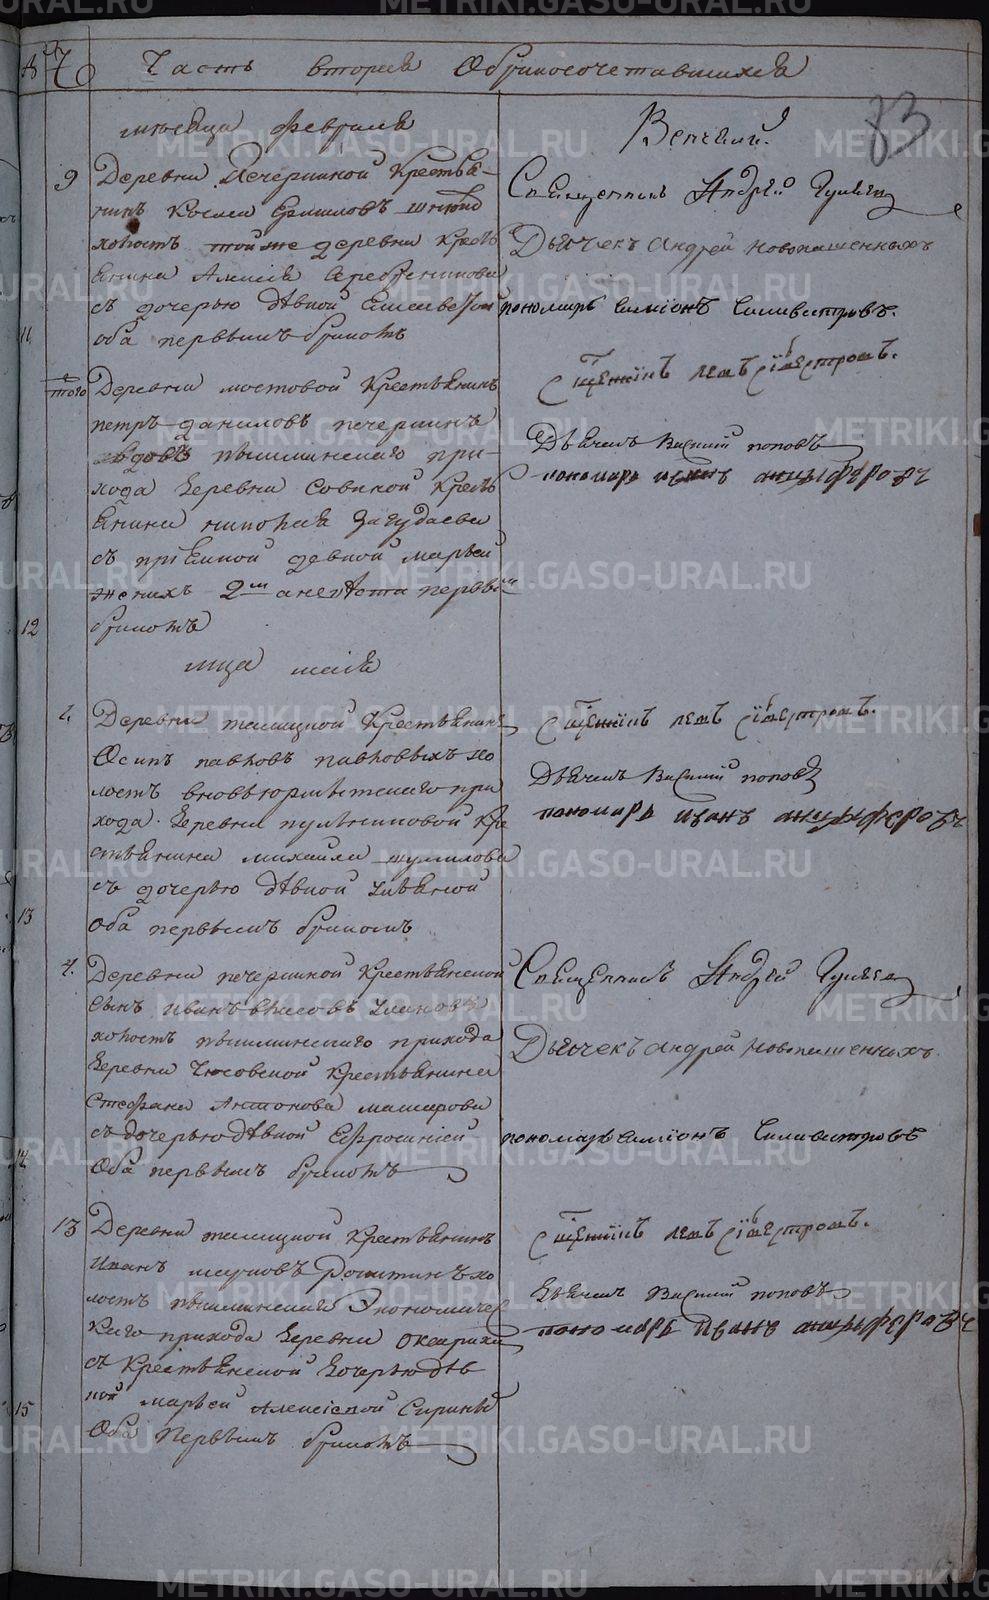 Часть вторая О бракосочетавшихся
73
месяца февраля
Венчали.
9 Деревни Печеркиной Крестья-
нинъ Косма Ермиловъ
холостъ той же деревни Кресть
янина Алексея Серебреникова
съ дочерью дѣвкой Елисаветой
оба первымъ бракомъ
Священникъ Андрей
Дьячекъ Андрей Новопашенныхъ
пономарь Симіонъ Силивестровъ.
11
того Деревни мостовой Крестьянинъ
петръ даниловъ печеркинъ
вдовъ пышминскаго при-
хода деревни Совкиной Кресть
янина
съ пріемной девкой марьей
женихъ 2м а невѣста первымъ
бракомъ
Священникъ левъ Силвестровъ.
Дьячекъ Василий поповъ
пономарь иванъ анцыферовъ
12
мца маія
2. Деревни талицкой Крестьянинъ
Осипъ павловъ павловыхъ хо
лостъ вновьюрмытскаго при
хода деревни пульниковой Кре
стьянина михаила шумилова
съ дочерью дѣвкой Ульяной
оба первымъ бракомъ
Священникъ левъ Силвестровъ.
Дьячекъ Василий поповъ
пономарь иванъ анцыферовъ
13
4. Деревни печеркиной Крестьянской
сынъ иванъ власовъ
холостъ пышминскаго прихода
деревни Чюсовской Крестьянина
Стефана Антонова машарова
съ дочерью дѣвкой Ефросиніей
Оба первымъ бракомъ
Священникъ Андрей
Дьячекъ Андрей Новопашенныхъ
пономарь Симіонъ Силивестровъ
14
13 Деревни талицкой Крестьянинъ
Иванъ марковъ Рокитинъ хо
лостъ пышминскаго Экономичес
каго прихода деревни
съ Крестьянской дочерью дѣв
кой марьей Алексіевой
Оба Первымъ бракомъ
Священникъ левъ Силвестровъ.
Дьячекъ Василий поповъ
пономарь Иванъ анцыферовъ
15
METRIKI.GASO-URAL.RU